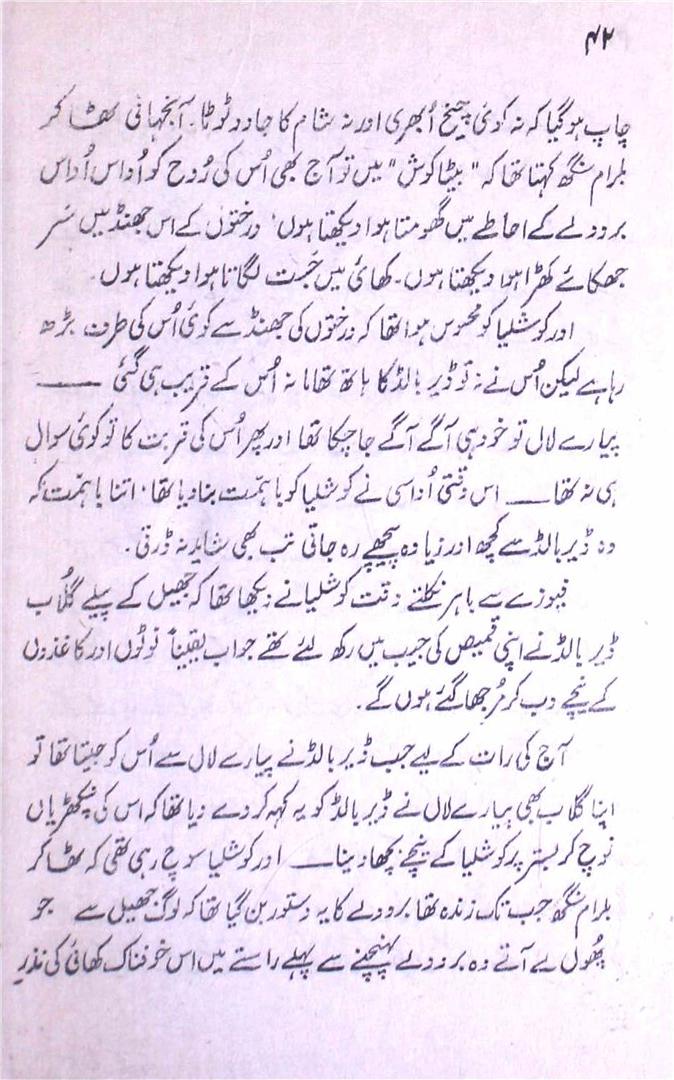 ۴۲
چاپ ہو گیا کہ نہ کوئی چیخ اُبھری اور نہ شام کا جادو ٹوٹا۔ آنجہانی ٹھاکر
بلرام سنگھ کہتا تھا کہ "بیٹا کوش" میں تو آج بھی اُس کی رُوح کو اُداس اُداس
بردولے کے احاطے میں گھومتا ہوا دیکھتا ہوں، درختوں کے اس جھنڈ میں سَر
جھکائے کھڑا ہوا دیکھتا ہوں۔ کھائی میں جَست لگاتا ہوا دیکھتا ہوں۔
اور کوشلیا کو محسوس ہوا تھا کہ درختوں کی جھنڈ سے کوئی اُس کی طرف بڑھ
رہا ہے لیکن اُس نے نہ تو ڈیر بالڈ کا ہاتھ تھاما نہ اُس کے قریب ہی گئی ——
پیارے لال تو خود ہی آگے آگے جا چکا تھا اور پھر اُس کی قربت کا تو کوئی سوال
ہی نہ تھا —— اس وقتی اُداسی نے کوشلیا کو باہمّت بنا دیا تھا۔ اتنا باہمّت کہ
وہ ڈیر بالڈ سے کچھ اور زیادہ پیچھے رہ جاتی تب بھی شاید نہ ڈرتی۔
فیوزے سے باہر نکلتے وقت کوشلیا نے دیکھا تھا کہ جھیل کے پیلے گلُاب
ڈیر بالڈ نے اپنی قمیص کی جیب میں رکھ لئے تھے جو اب یقیناً نوٹوں اور کاغذوں
کے نیچے دب کر مُرجھا گئے ہوں گے۔
آج کی رات کے لیے جب ڈیر بالڈ نے پیارے لال سے اُس کو جیتا تھا تو
اپنا گلاب بھی پیارے لال نے ڈیر بالڈ کو یہ کہہ کر دے دیا تھا کہ اس کی پنکھڑیاں
نوچ کر بستر پر کوشلیا کے نیچے بچھا دینا —— اور کوشلیا سوچ رہی تھی کہ ٹھاکر
بلرام سنگھ جب تک زندہ تھا بردولے کا یہ دستور بن گیا تھا کہ لوگ جھیل سے جو
پھُول لے آتے وہ بردولے پہنچنے سے پہلے راستے میں اس خوفناک کھائی کی نذر